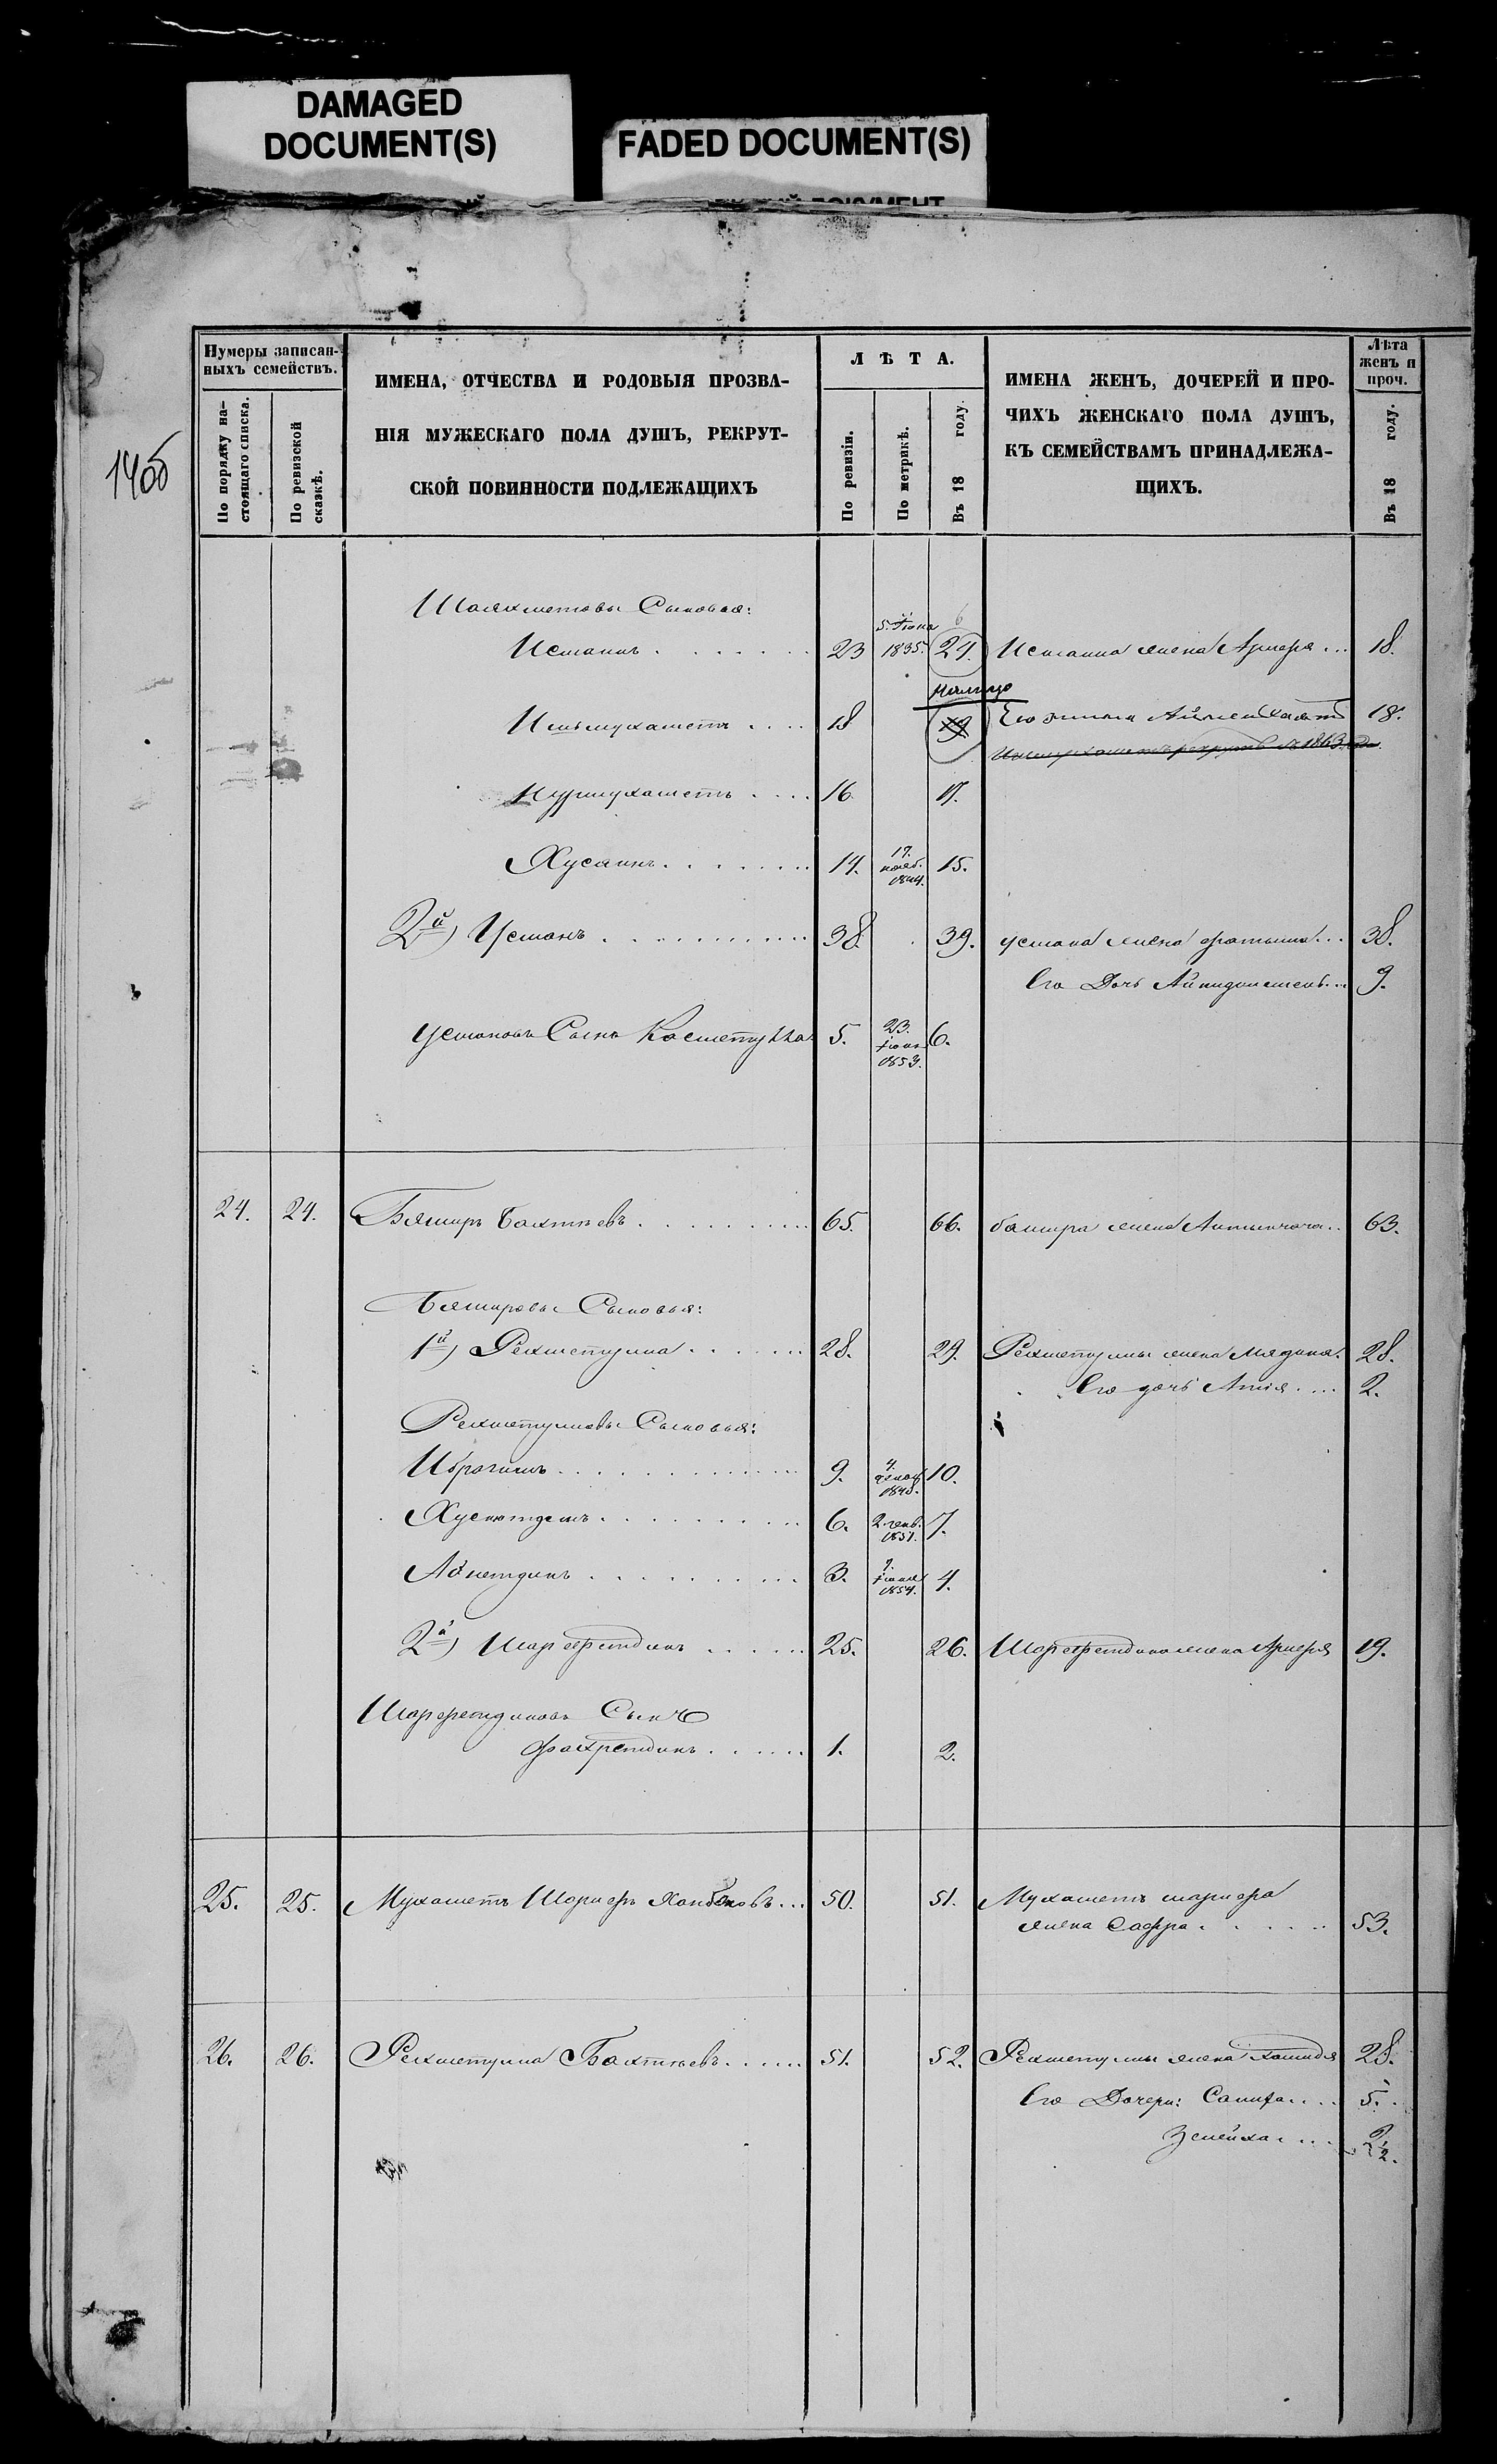 DAMAGED
DOCUMENT(S)
FADED DOCUMENT(S)
140б
Нумеры записан-
ныхъ семействъ.
По порядку на-
стоящаго списка.
По ревизской
сказкѣ.
ИМЕНА, ОТЧЕСТВА И РОДОВЫЯ ПРОЗВА-
НІЯ МУЖЕСКАГО ПОЛА ДУШЪ, РЕКРУТ-
СКОЙ ПОВИННОСТИ ПОДЛЕЖАЩИХЪ
ЛѢТА.
По ревизіи.
По метрикѣ.
Въ 18 году.
ИМЕНА ЖЕНЪ, ДОЧЕРЕЙ И ПРО-
ЧИХЪ ЖЕНСКАГО ПОЛА ДУШЪ,
КЪ СЕМЕЙСТВАМЪ ПРИНАДЛЕЖА-
ЩИХЪ.
Лѣта
женъ и
проч.
Въ 18 году.
Шаяхметовы Сыновья:
Исмаилъ 23 5. Іюня 1835. 24. Исмаила жена 18.
18 Его жена 18.
16 17.
Хусаинъ 14. 17. нояб. 1844. 15.
2й) Усманъ 38. 39. Усмана жена Фатыма 38.
Его Дочь 9.
Усмановъ Сынъ 5. 23. 1853. 6.
24. 24. Бяширъ Бахтѣевъ 65. 66. башира жена 63.
Бяшировы Сыновья:
1й) Рехметулла 28. 29. Рехметуллы жена Мядина 28.
Его дочь 2.
Рехметулловы Сыновья:
Ибрагимъ 9. 4. 1848. 10.
Хуснютдинъ 6. 2. генв. 1851. 7.
Айнетдинъ 3. 1854. 4.
2й) Шарефетдинъ 25. 26. Шарефетдина жена 19.
Шарефетдиновъ Сынъ
Фахретдинъ 1. 2.
25. 25. Мухаметъ Шарифъ Ханбековъ 50. 51. Мухаметъ шарифа
жена Сафра 53.
26. 26. Рехметулла Бахтѣевъ 51. 52. Рехметуллы жена Хамидя 28.
Его Дочери: 5.
Зелейха